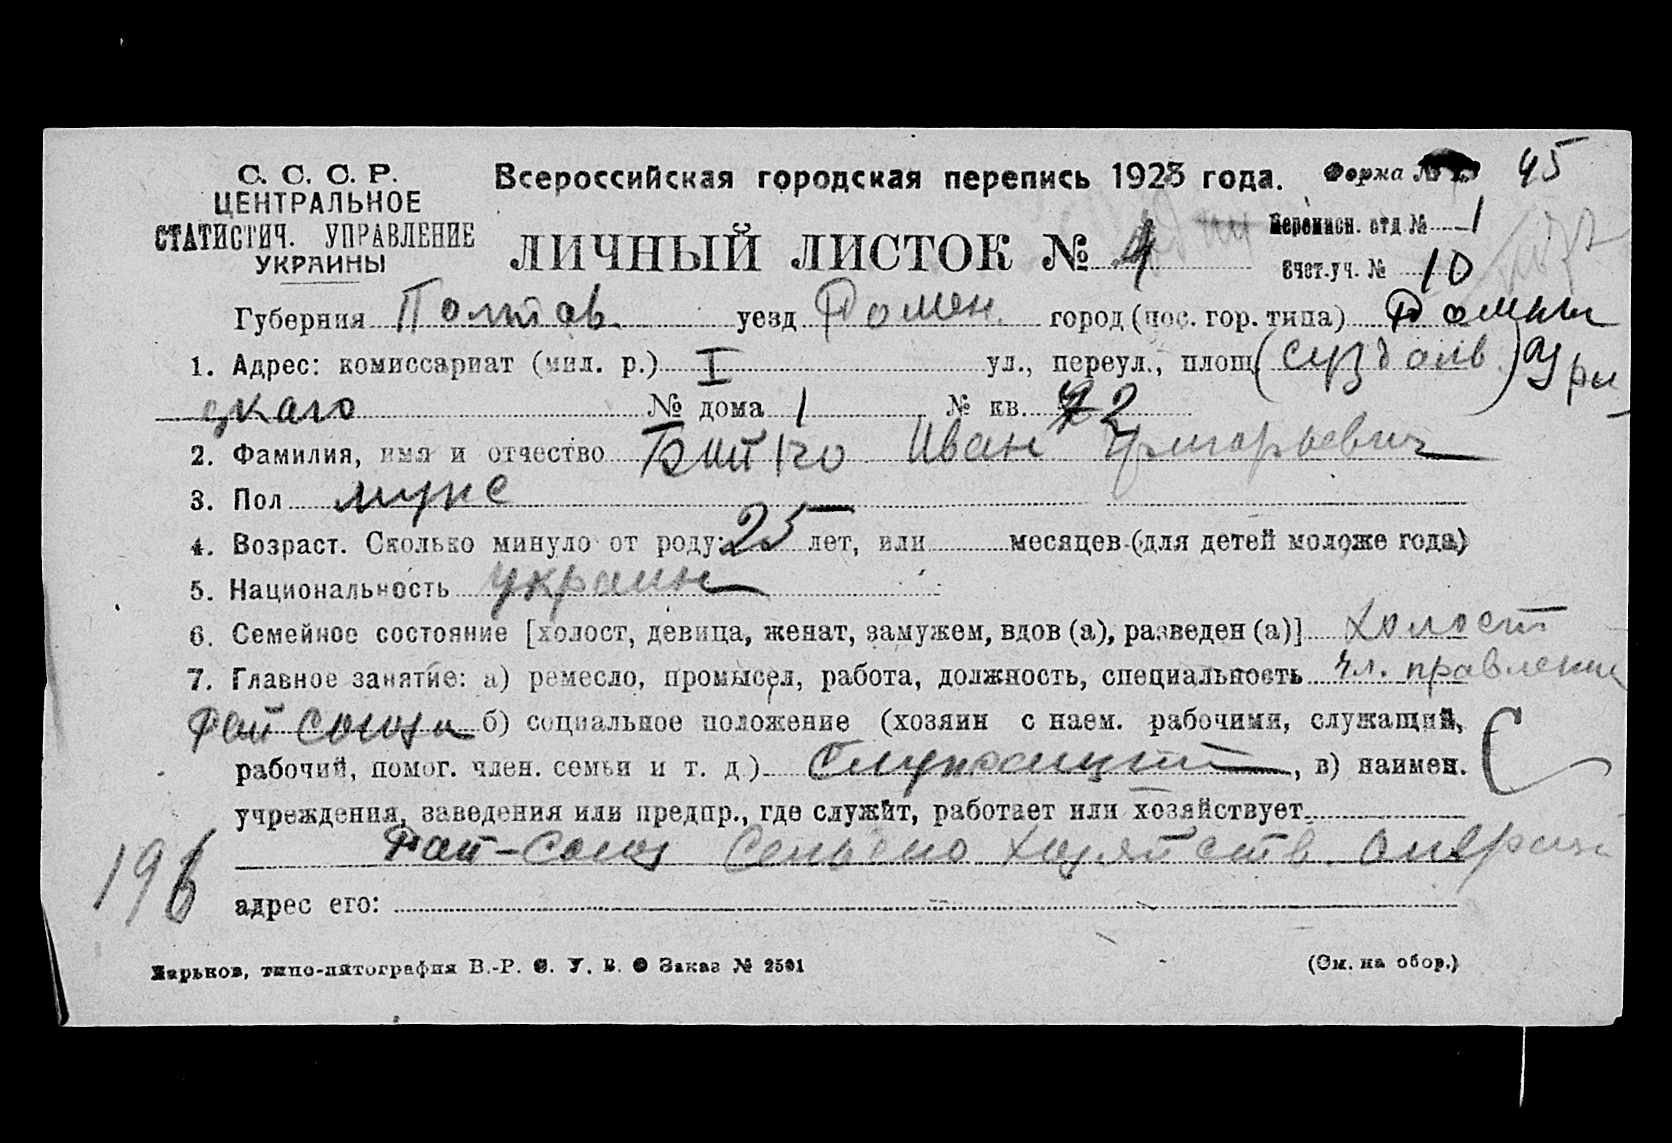 С. С. С. Р.
ЦЕНТРАЛЬНОЕ
СТАТИСТИЧ. УПРАВЛЕНИЕ
УКРАИНЫ
Всероссийская городская перепись 1923 года.
Форма № 45
ЛИЧНЫЙ ЛИСТОК № 4
Переписн. отд № 1
Счет.уч. № 10
Губерния Полтав. уезд Ромен. город (пос. гор. типа) Ромны
1. Адрес: комиссариат (мил. р.) I ул., переул., площ. (Суздальв.) Ури
цкаго № дома 1 № кв. 2
2. Фамилия, имя и отчество Битко Иван Григорьевич
3. Пол муж
4. Возраст. Сколько минуло от роду: 25 лет, или месяцев (для детей моложе года)
5. Национальность украин
6. Семейное состояние [холост, девица, женат, замужем, вдов (а), разведен (а)] холост
7. Главное занятие: а) ремесло, промысел, работа, должность, специальность чл. правления
Райсоюза б) социальное положение (хозяин с наем. рабочими, служащий, С
рабочий, помог. член. семьи и т. д.) Служащий, в) наимен.
учреждения, заведения или предпр., где служит, работает или хозяйствует
Рай-Союз Сельско хозяйств.
196
адрес его:
Харьков, типо-литография В.-Р. Заказ № 2501
(См. на обор.)